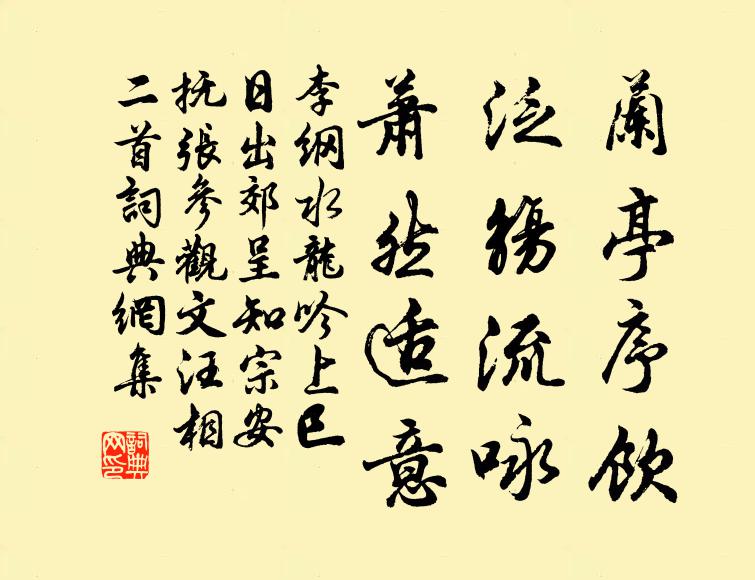 蘭亭序飲
泛觴流咏
蕭然适意
李綱水龍吟上巳
日出郊呈知宗安
抚張參觀文汪相
二首詞典網集
詞典网印